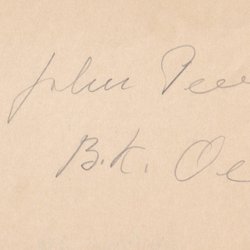 John Pee
B.K. Oe